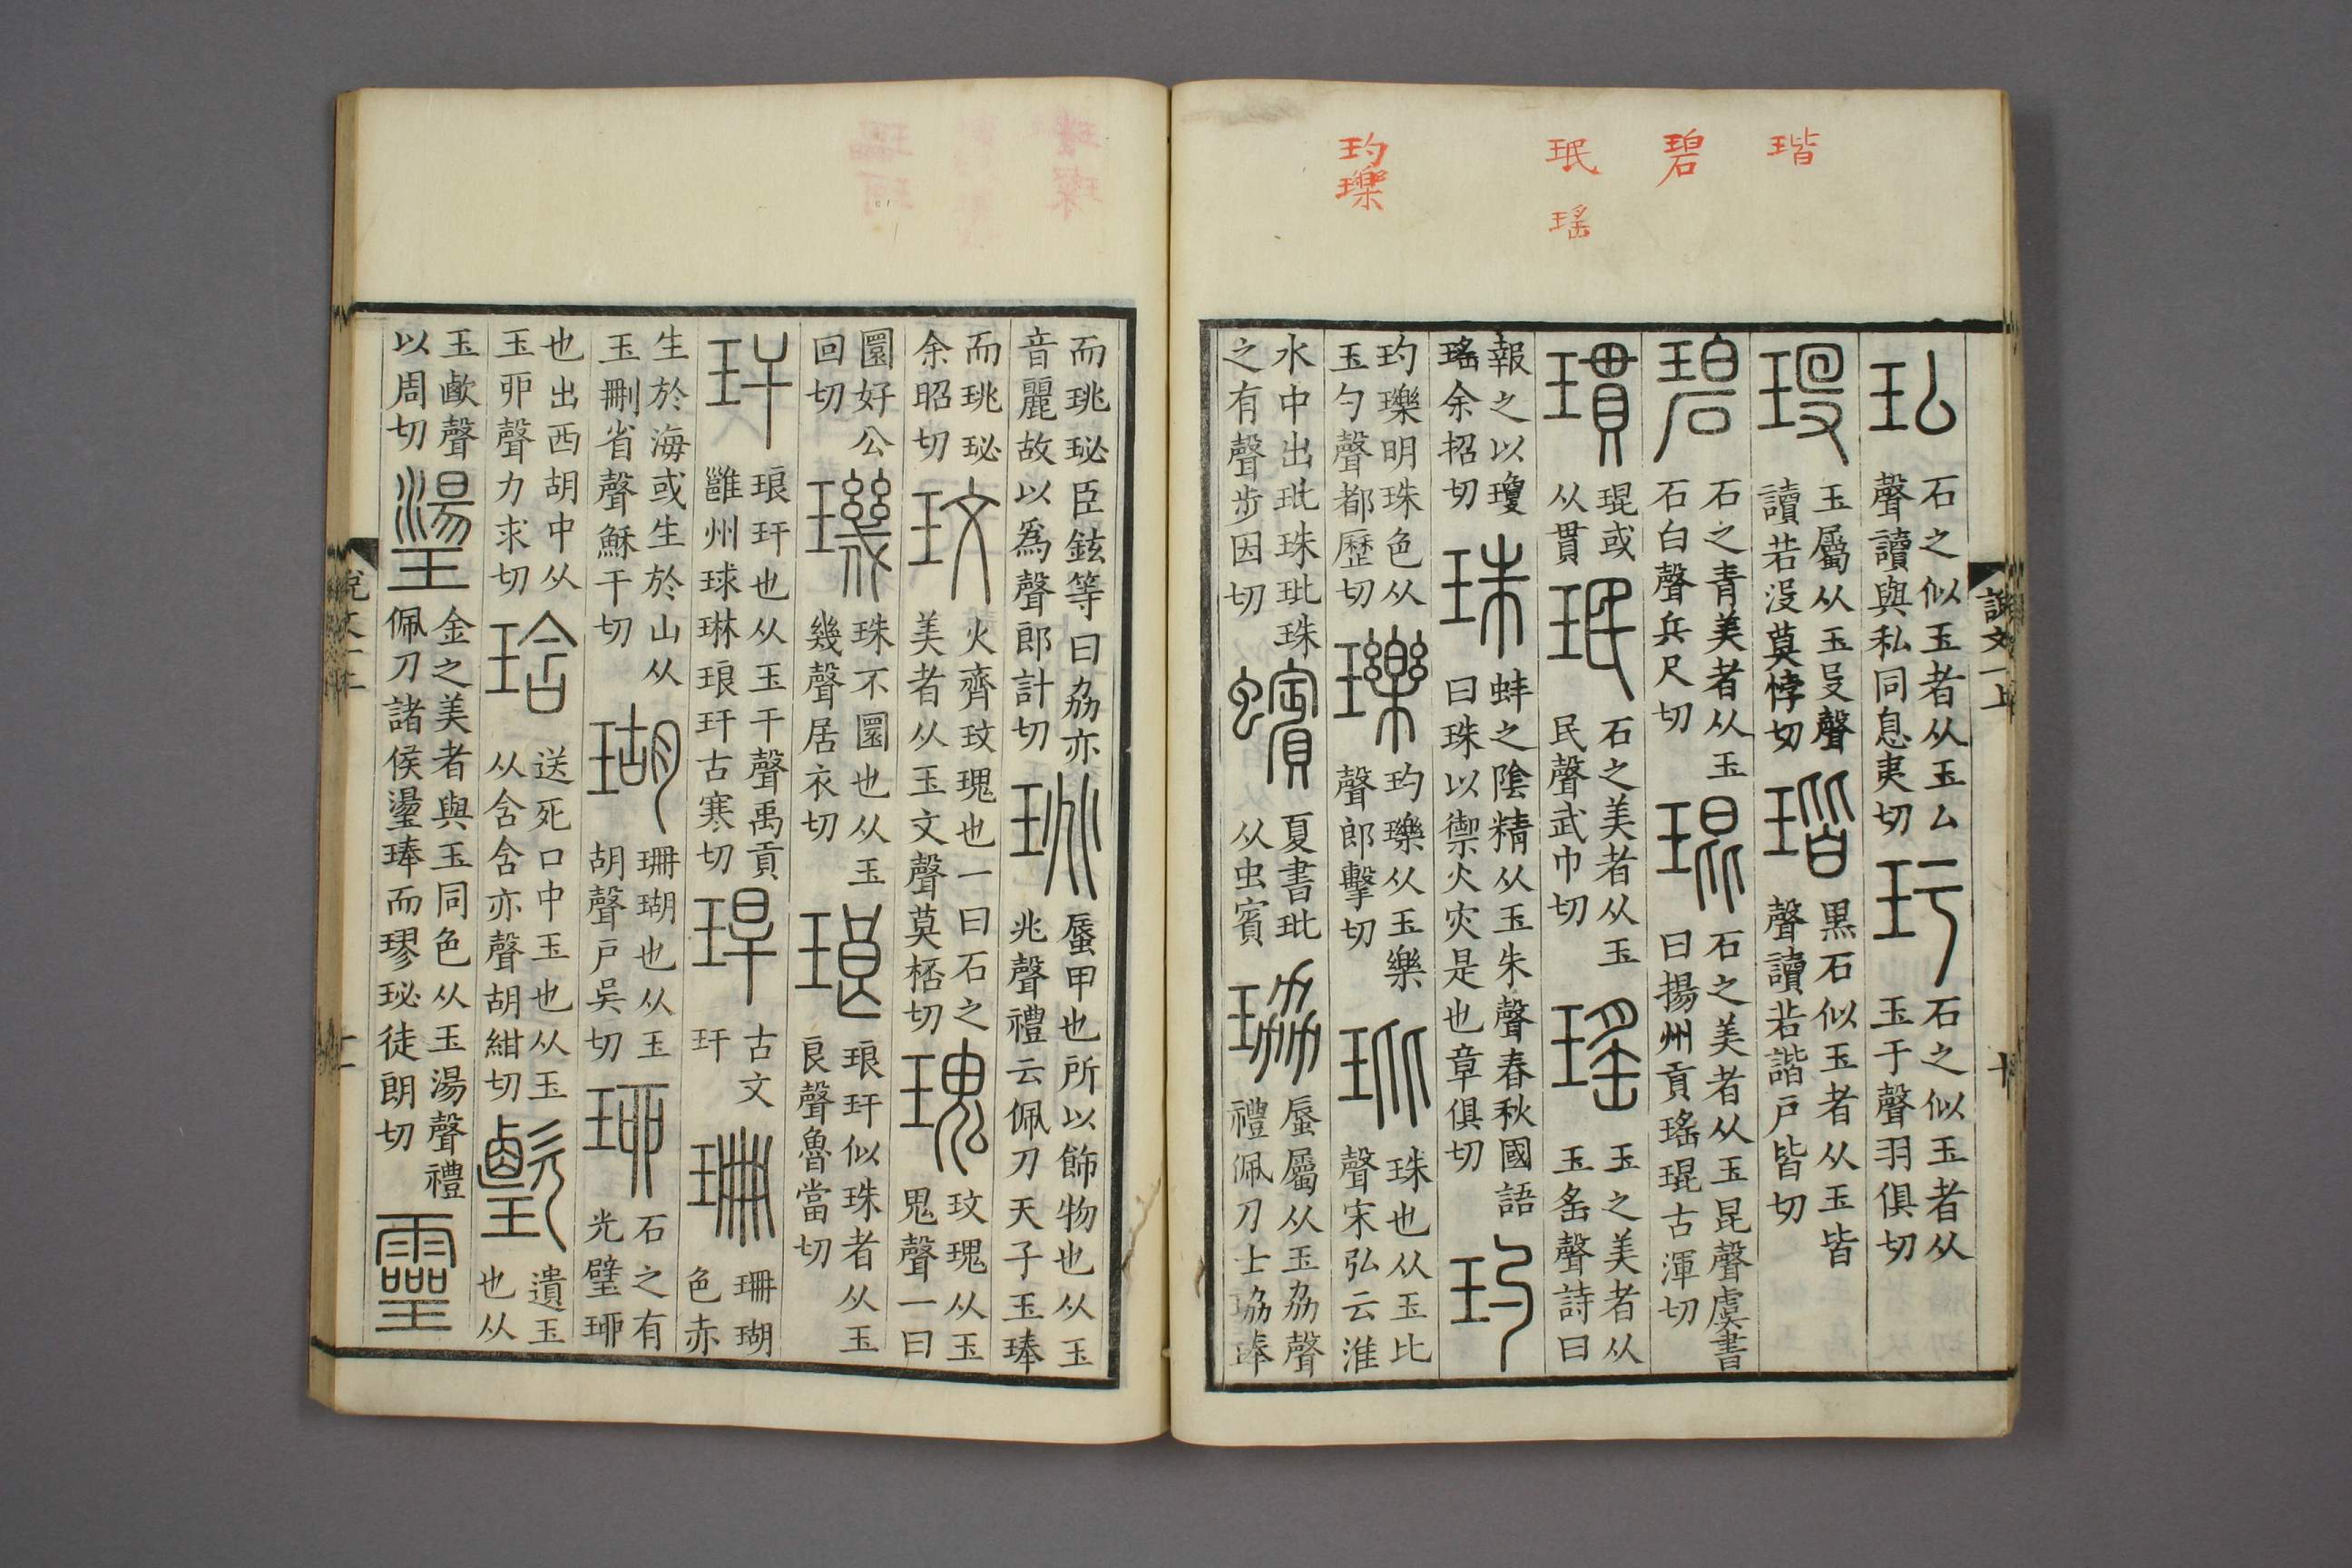 瑎
碧
珉 瑤
玓瓅
說文一上 十
㺨 石之似玉者从玉厶聲讀與私同息夷切 玗 石之似玉者从玉于聲羽俱切
玉屬从玉𠬛聲讀若沒莫悖切 瑎 黑石似玉者从玉皆聲讀若諧戶皆切
碧 石之青美者从玉石白聲兵尺切 琨 石之美者从玉昆聲虞書曰揚州貢瑤琨古渾切
瑻 琨或从貫 珉 石之美者从玉民聲武巾切 瑤 玉之美者从玉䍃聲詩曰
報之以瓊瑤余招切 珠 蚌之陰精从玉朱聲春秋國語曰珠以禦火灾是也章俱切 玓
玓瓅明珠色从玉勺聲都歷切 瓅 玓瓅从玉樂聲郎擊切 玭 珠也从玉比聲宋弘云淮
水中出玭珠玭珠之有聲步因切 蠙 夏書玭从虫賓 珕 蜃屬从玉劦聲禮佩刀士珕琫
而珧珌臣鉉等曰劦亦音麗故以爲聲郎計切 珧 蜃甲也所以飾物也从玉兆聲禮云佩刀天子玉琫
而珧珌余昭切 玟 火齊玟瑰也一曰石之美者从玉文聲莫桮切 瑰 玟瑰从玉鬼聲一曰
圜好公回切 璣 珠不圜也从玉幾聲居衣切 琅 琅玕似珠者从玉良聲魯當切
玕 琅玕也从玉干聲禹貢雝州球琳琅玕古寒切 古文玕 珊 珊瑚色赤
生於海或生於山从玉刪省聲穌干切 瑚 珊瑚也从玉胡聲戶吳切 珋 石之有光璧珋
也出西胡中从玉丣聲力求切 琀 送死口中玉也从玉从含含亦聲胡紺切 遺玉也从
玉歔聲以周切 璗 金之美者與玉同色从玉湯聲禮佩刀諸侯璗琫而璆珌徒朗切 靈